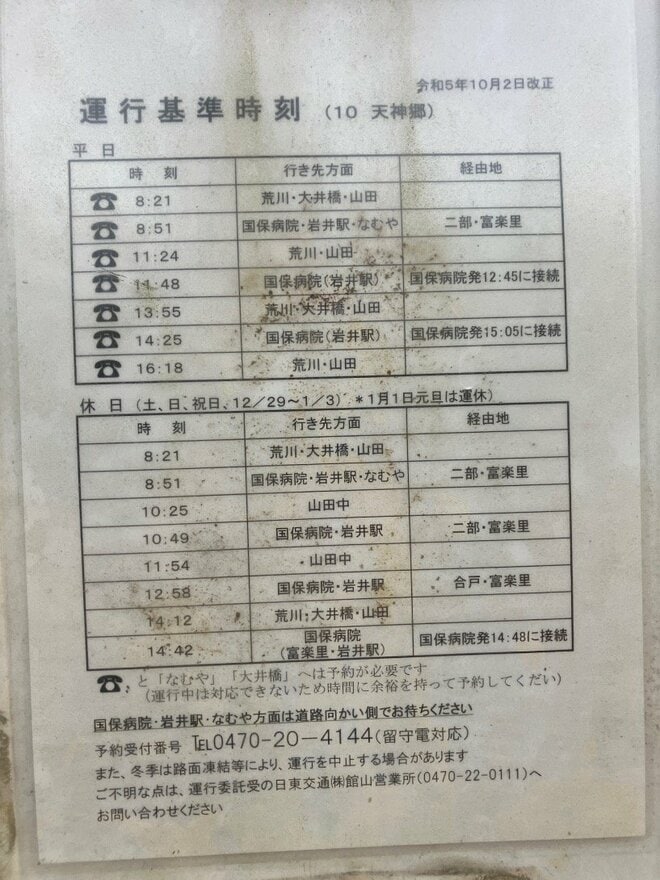 令和5年10月2日改正
運行基準時刻 (10 天神郷)
平日
時刻 行き先方面 経由地
☎ 8:21 荒川・大井橋・山田
☎ 8:51 国保病院・岩井駅・なむや 二部・富楽里
☎ 11:24 荒川・山田
☎ 11:48 国保病院(岩井駅) 国保病院発12:45に接続
☎ 13:55 荒川・大井橋・山田
☎ 14:25 国保病院(岩井駅) 国保病院発15:05に接続
☎ 16:18 荒川・山田
休日 (土、日、祝日、12/29~1/3) *1月1日元旦は運休)
時刻 行き先方面 経由地
8:21 荒川・大井橋・山田
8:51 国保病院・岩井駅・なむや 二部・富楽里
10:25 山田中
10:49 国保病院・岩井駅 二部・富楽里
11:54 山田中
12:58 国保病院・岩井駅 合戸・富楽里
14:12 荒川・大井橋・山田
14:42 国保病院 国保病院発14:48に接続
(富楽里・岩井駅)
☎と「なむや」「大井橋」へは予約が必要です
(運行中は対応できないため時間に余裕を持って予約してくだい)
国保病院・岩井駅・なむや方面は道路向かい側でお待ちください
予約受付番号 TEL0470-20-4144(留守電対応)
また、冬季は路面凍結等により、運行を中止する場合があります
ご不明な点は、運行委託受の日東交通㈱館山営業所(0470-22-0111)へ
お問い合わせください